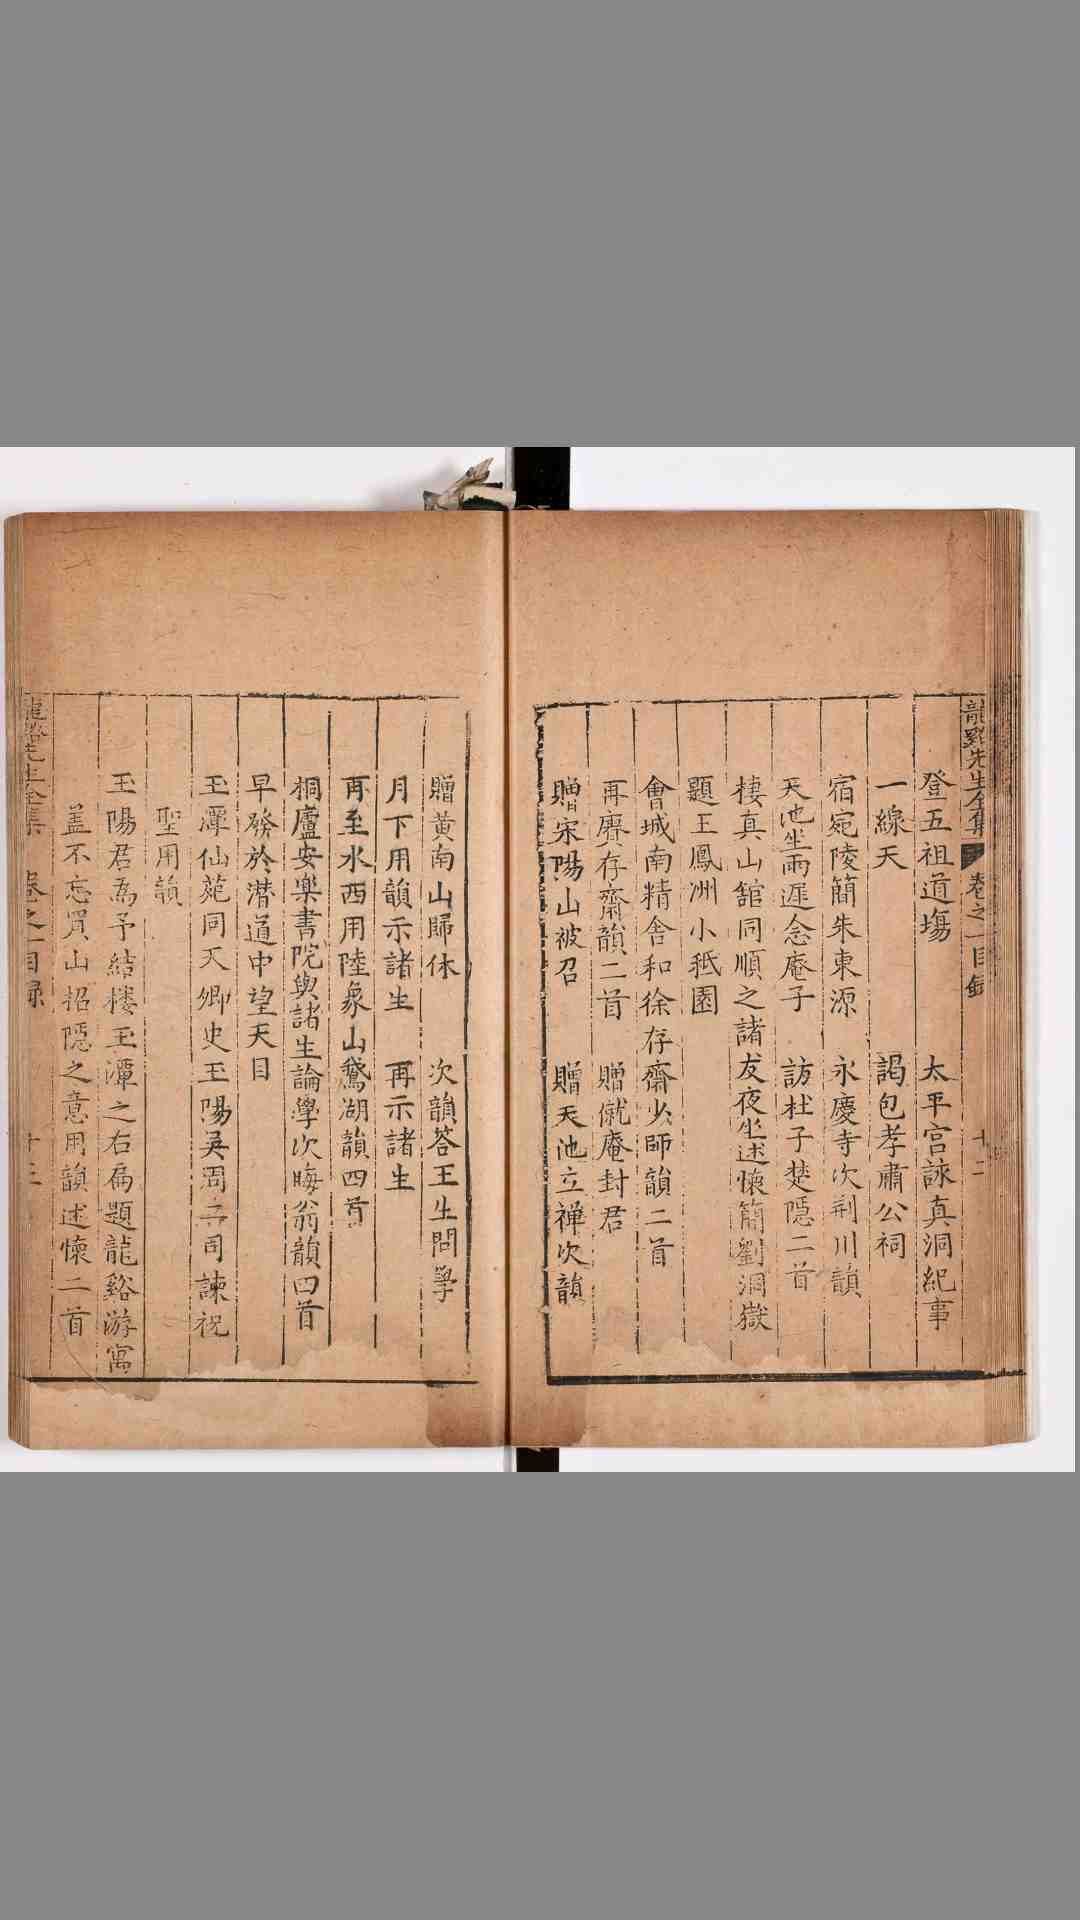 龍谿先生全集 卷之一目錄 十二
登五祖道塲 太平宮詠真洞紀事
一線天 謁包孝肅公祠
宿宛陵簡朱東源 永慶寺次荆川韻
天池坐雨遲念庵子 訪杜子楚隱二首
棲真山舘同順之諸友夜坐述懷簡劉洞嶽
題王鳳洲小秪園
會城南精舍和徐存齋少師韻二首
再賡存齋韻二首 贈僦庵封君
贈宋陽山被召 贈天池立禅次韻
贈黄南山歸休 次韻荅王生問學
月下用韻示諸生 再示諸生
再至水西用陸象山鵞湖韻四首
桐廬安樂書院與諸生論學次晦翁韻四首
早發於潜道中望天目
玉潭仙菀同天卿史玉陽吳周二司諫祝
聖用韻
玉陽君為予結樓玉潭之右扁題龍谿游寓
盖不忘買山招隱之意用韻述懷二首
龍谿先生全集 卷之一目録 十三